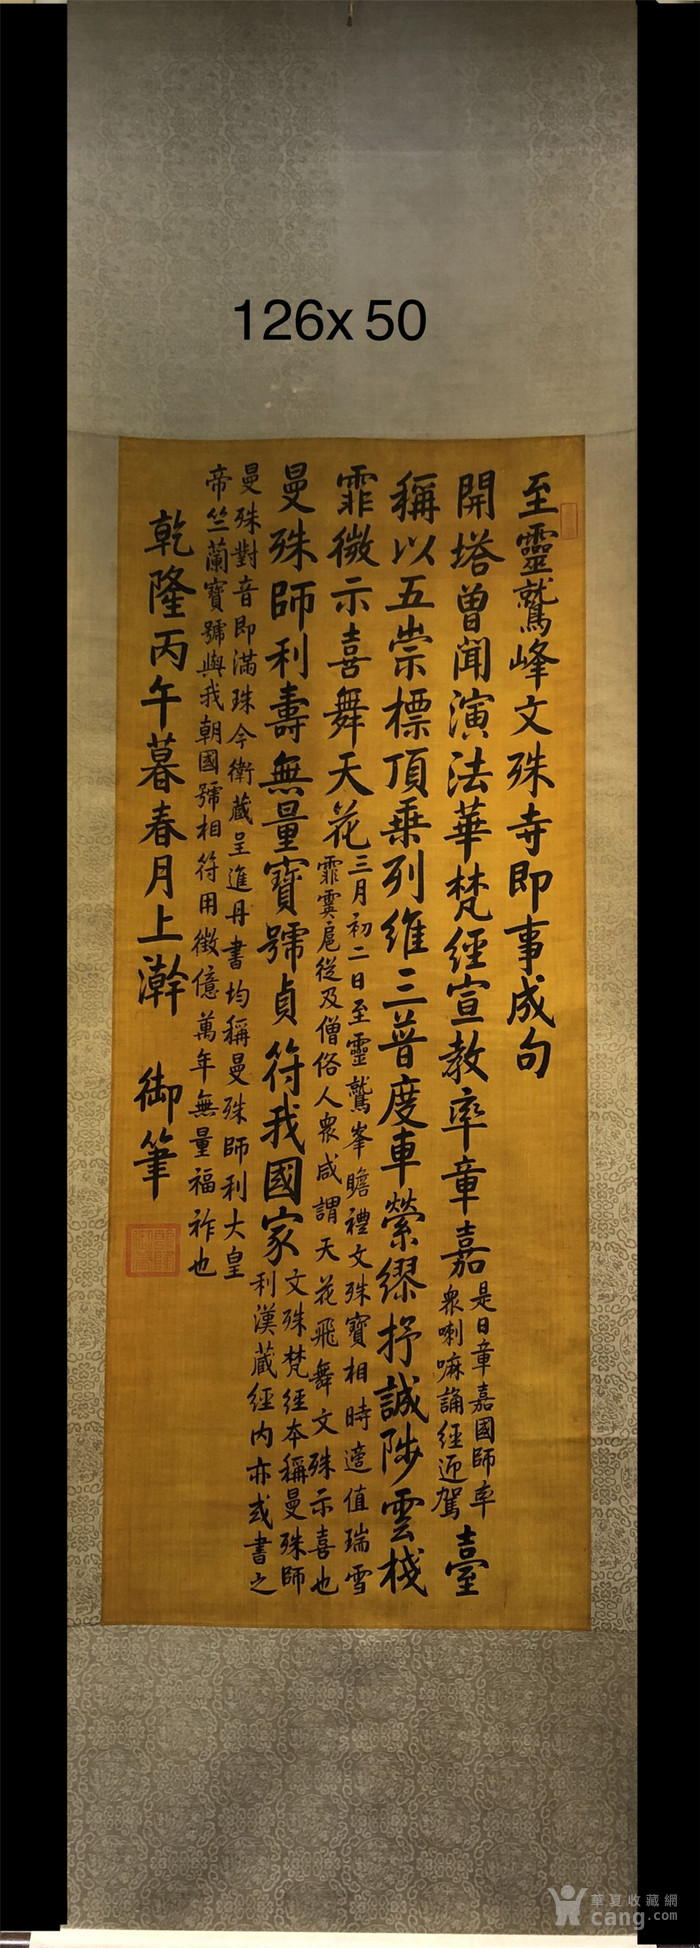 126x 50
至靈鷲峰文殊寺即事成句
開塔曾聞演法華梵經宣教率章嘉
是日章嘉國師率
衆喇嘛誦經迎駕
臺
稱以五崇標頂乘列維三普度車縈繆抒誠陟雲棧
霏微示喜舞天花
三月初二日至靈鷲峯瞻禮文殊寶相時適值瑞雪
霏霙扈從及僧俗人衆咸謂天花飛舞文殊示喜也
曼殊師利壽無量寶號貞符我國家
文殊梵經本稱曼殊師
利漢藏經內亦或書之
曼殊對音即滿珠今衛藏呈進丹書均稱曼殊師利大皇
帝竺蘭寶號與我朝國號相符用徵億萬年無量福祚也
乾隆丙午暮春月上澣 御筆
華夏收藏網
cang.com